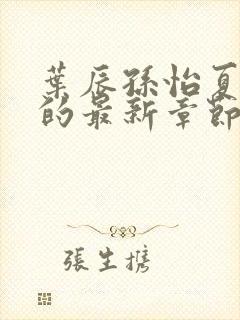 葉辰孫怡夏
的最新章節
張生携